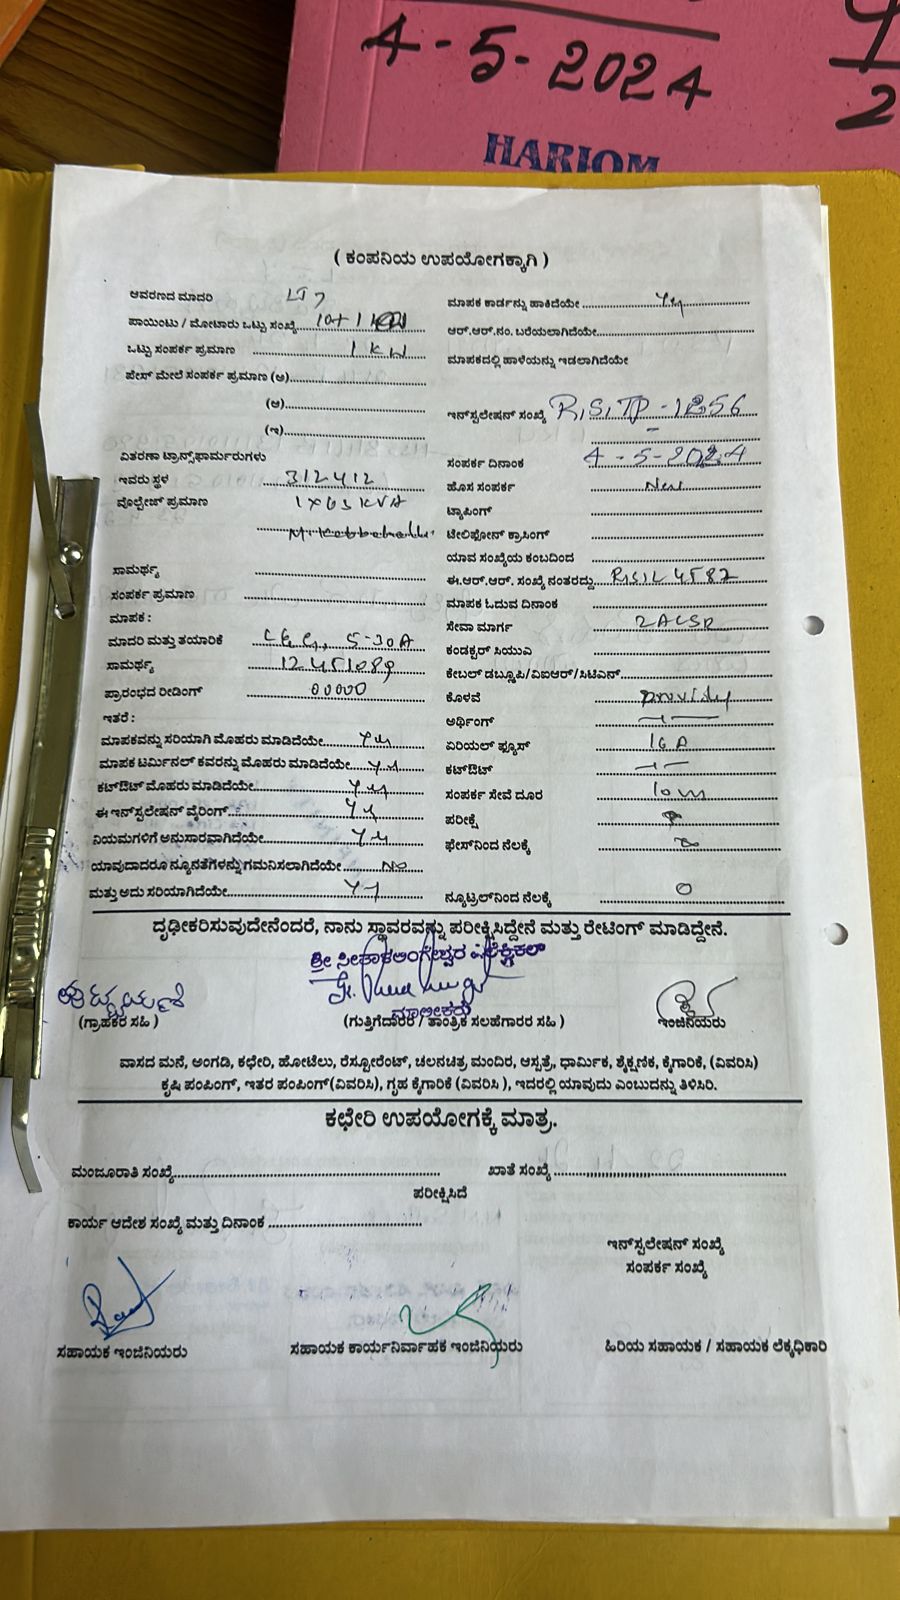 4-5-2024
2
HARIOM
( ಕಂಪನಿಯ ಉಪಯೋಗಕ್ಕಾಗಿ )
ಆವರಣದ ಮಾದರಿ LT7
ಪಾಯಿಂಟು / ಮೋಟಾರು ಒಟ್ಟು ಸಂಖ್ಯೆ
ಒಟ್ಟು ಸಂಪರ್ಕ ಪ್ರಮಾಣ 1 KW
ಫೇಸ್ ಮೇಲೆ ಸಂಪರ್ಕ ಪ್ರಮಾಣ (ಅ)
(ಆ)
(ಇ)
ವಿತರಣಾ ಟ್ರಾನ್ಸ್‌ಫಾರ್ಮರುಗಳು
ಇವರು ಸ್ಥಳ 312412
ವೋಲ್ಟೇಜ್ ಪ್ರಮಾಣ 1X63 KVA
ಸಾಮರ್ಥ್ಯ
ಸಂಪರ್ಕ ಪ್ರಮಾಣ
ಮಾಪಕ :
ಮಾದರಿ ಮತ್ತು ತಯಾರಿಕೆ 5-30A
ಸಾಮರ್ಥ್ಯ 12451089
ಪ್ರಾರಂಭದ ರೀಡಿಂಗ್ 00000
ಇತರೆ :
ಮಾಪಕವನ್ನು ಸರಿಯಾಗಿ ಮೊಹರು ಮಾಡಿದೆಯೇ Yes
ಮಾಪಕ ಟರ್ಮಿನಲ್ ಕವರನ್ನು ಮೊಹರು ಮಾಡಿದೆಯೇ Yes
ಕಟ್‌ಔಟ್ ಮೊಹರು ಮಾಡಿದೆಯೇ Yes
ಈ ಇನ್‌ಸ್ಟಲೇಷನ್ ವೈರಿಂಗ್ Yes
ನಿಯಮಗಳಿಗೆ ಅನುಸಾರವಾಗಿದೆಯೇ Yes
ಯಾವುದಾದರೂ ನ್ಯೂನತೆಗಳನ್ನು ಗಮನಿಸಲಾಗಿದೆಯೇ No
ಮತ್ತು ಅದು ಸರಿಯಾಗಿದೆಯೇ Yes
ಮಾಪಕ ಕಾರ್ಡನ್ನು ಹಾಕಿದೆಯೇ Yes
ಆರ್.ಆರ್.ನಂ. ಬರೆಯಲಾಗಿದೆಯೇ
ಮಾಪಕದಲ್ಲಿ ಹಾಳೆಯನ್ನು ಇಡಲಾಗಿದೆಯೇ
ಇನ್‌ಸ್ಟಲೇಷನ್ ಸಂಖ್ಯೆ RSTP-1856
ಸಂಪರ್ಕ ದಿನಾಂಕ 4-5-2024
ಹೊಸ ಸಂಪರ್ಕ New
ಟ್ಯಾಪಿಂಗ್
ಟೆಲಿಫೋನ್ ಕ್ರಾಸಿಂಗ್
ಯಾವ ಸಂಖ್ಯೆಯ ಕಂಬದಿಂದ
ಈ.ಆರ್.ಆರ್. ಸಂಖ್ಯೆ ನಂತರದ್ದು RSL 4587
ಮಾಪಕ ಓದುವ ದಿನಾಂಕ
ಸೇವಾ ಮಾರ್ಗ 2ACSR
ಕಂಡಕ್ಟರ್ ಸಿಯುವಿ
ಕೇಬಲ್ ಡಬ್ಲೂಪಿ/ವಿಐಆರ್/ಸಿಟಿಎಸ್
ಕೊಳವೆ
ಅರ್ಥಿಂಗ್
ಏರಿಯಲ್ ಫ್ಯೂಸ್ 16 A
ಕಟ್‌ಔಟ್
ಸಂಪರ್ಕ ಸೇವೆ ದೂರ 10m
ಪರೀಕ್ಷೆ
ಫೇಸ್‌ನಿಂದ ನೆಲಕ್ಕೆ
ನ್ಯೂಟ್ರಲ್‌ನಿಂದ ನೆಲಕ್ಕೆ 0
ದೃಢೀಕರಿಸುವುದೇನೆಂದರೆ, ನಾನು ಸ್ಥಾವರವನ್ನು ಪರೀಕ್ಷಿಸಿದ್ದೇನೆ ಮತ್ತು ರೇಟಿಂಗ್ ಮಾಡಿದ್ದೇನೆ.
ಶ್ರೀ ಸೀತಾಳಲಿಂಗೇಶ್ವರ ಎಲೆಕ್ಟ್ರಿಕಲ್
ಮಾಲೀಕರು
(ಗ್ರಾಹಕರ ಸಹಿ ) (ಗುತ್ತಿಗೆದಾರರ / ತಾಂತ್ರಿಕ ಸಲಹೆಗಾರರ ಸಹಿ ) ಇಂಜಿನಿಯರು
ವಾಸದ ಮನೆ, ಅಂಗಡಿ, ಕಛೇರಿ, ಹೋಟೆಲು, ರೆಸ್ಟೋರೆಂಟ್, ಚಲನಚಿತ್ರ ಮಂದಿರ, ಆಸ್ಪತ್ರೆ, ಧಾರ್ಮಿಕ, ಶೈಕ್ಷಣಿಕ, ಕೈಗಾರಿಕೆ, (ವಿವರಿಸಿ)
ಕೃಷಿ ಪಂಪಿಂಗ್, ಇತರ ಪಂಪಿಂಗ್(ವಿವರಿಸಿ), ಗೃಹ ಕೈಗಾರಿಕೆ (ವಿವರಿಸಿ ), ಇದರಲ್ಲಿ ಯಾವುದು ಎಂಬುದನ್ನು ತಿಳಿಸಿರಿ.
ಕಛೇರಿ ಉಪಯೋಗಕ್ಕೆ ಮಾತ್ರ.
ಮಂಜೂರಾತಿ ಸಂಖ್ಯೆ ಖಾತೆ ಸಂಖ್ಯೆ
ಪರೀಕ್ಷಿಸಿದೆ
ಕಾರ್ಯ ಆದೇಶ ಸಂಖ್ಯೆ ಮತ್ತು ದಿನಾಂಕ
ಇನ್‌ಸ್ಟಲೇಷನ್ ಸಂಖ್ಯೆ
ಸಂಪರ್ಕ ಸಂಖ್ಯೆ
ಸಹಾಯಕ ಇಂಜಿನಿಯರು ಸಹಾಯಕ ಕಾರ್ಯನಿರ್ವಾಹಕ ಇಂಜಿನಿಯರು ಹಿರಿಯ ಸಹಾಯಕ / ಸಹಾಯಕ ಲೆಕ್ಕಧಿಕಾರಿ